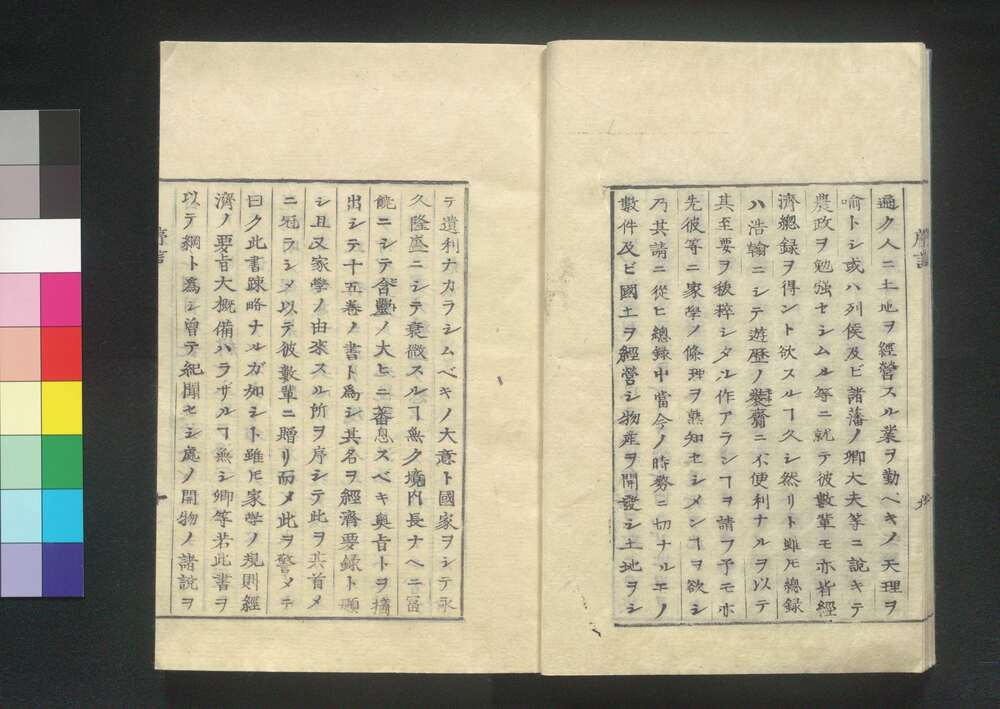 遍ク人ニ土地ヲ經營スル業ヲ勤ベキノ天理ヲ
喻トシ或ハ列侯及ビ諸藩ノ卿大夫等ニ說キテ
農政ヲ勉強セシムル等ニ就テ彼數輩モ亦皆經
濟總録ヲ得ント欲スルヿ久シ然リト雖𪜈總録
ハ浩翰ニシテ遊歷ノ裝齎ニ不便利ナルヲ以テ
其至要ヲ拔粹シタル作アランヿヲ請フ予モ亦
先彼等ニ家學ノ條理ヲ熟知セシメンヿヲ欲シ
乃其請ニ從ヒ總録中當今ノ時務ニ切ナルモノ
數件及ビ國土ヲ經營シ物產ヲ開發シ土地ヲシ
テ遺利ナカラシムベキノ大意ト國家ヲシテ永
久隆盛ニシテ衰微スルヿ無ク境內長ナヘニ冨
饒ニシテ食豐ノ大ヒニ蕃息スベキ奧旨トヲ摘
出シテ十五卷ノ書ト為シ其名ヲ經濟要録ト題
シ且又家學ノ由來スル所ヲ序シテ此ヲ其首メ
ニ冠ラシメ以テ彼數輩ニ贈リ而メ此ヲ警メテ
曰ク此書踈略ナルガ如シト雖𪜈家學ノ規則經
濟ノ要旨大概備ハラザルヿ無シ卿等若此書ヲ
以テ綱ト為シ曽テ紀聞セシ處ノ開物ノ諸說ヲ
序言